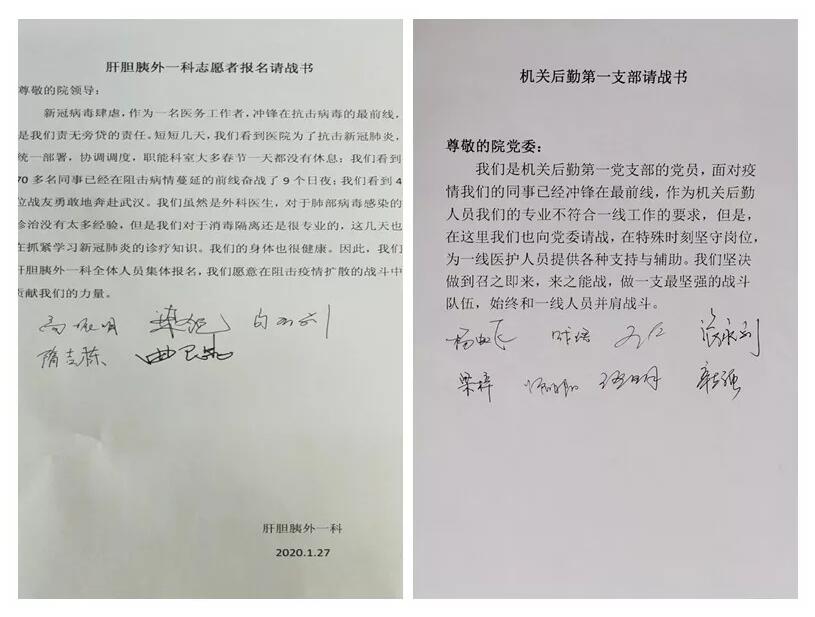 肝胆胰外一科志愿者报名请战书
尊敬的院领导：
新冠病毒肆虐，作为一名医务工作者，冲锋在抗击病毒的最前线，
是我们责无旁贷的责任。短短几天，我们看到医院为了抗击新冠肺炎，
统一部署，协调调度，职能科室大多春节一天都没有休息；我们看到
70多名同事已经在阻击病情蔓延的前线奋战了9个日夜；我们看到4
位战友勇敢地奔赴武汉。我们虽然是外科医生，对于肺部病毒感染的
诊治没有太多经验，但是我们对于消毒隔离还是很专业的，这几天也
在抓紧学习新冠肺炎的诊疗知识。我们的身体也很健康。因此，我们
肝胆胰外一科全体人员集体报名，我们愿意在阻击疫情扩散的战斗中
贡献我们的力量。
隋志栋
肝胆胰外一科
2020.1.27
机关后勤第一支部请战书
尊敬的院党委：
我们是机关后勤第一党支部的党员，面对疫
情我们的同事已经冲锋在最前线，作为机关后勤
人员我们的专业不符合一线工作的要求，但是，
在这里我们也向党委请战，在特殊时刻坚守岗位，
为一线医护人员提供各种支持与辅助。我们坚决
做到召之即来，来之能战，做一支最坚强的战斗
队伍，始终和一线人员并肩战斗。
梁梓